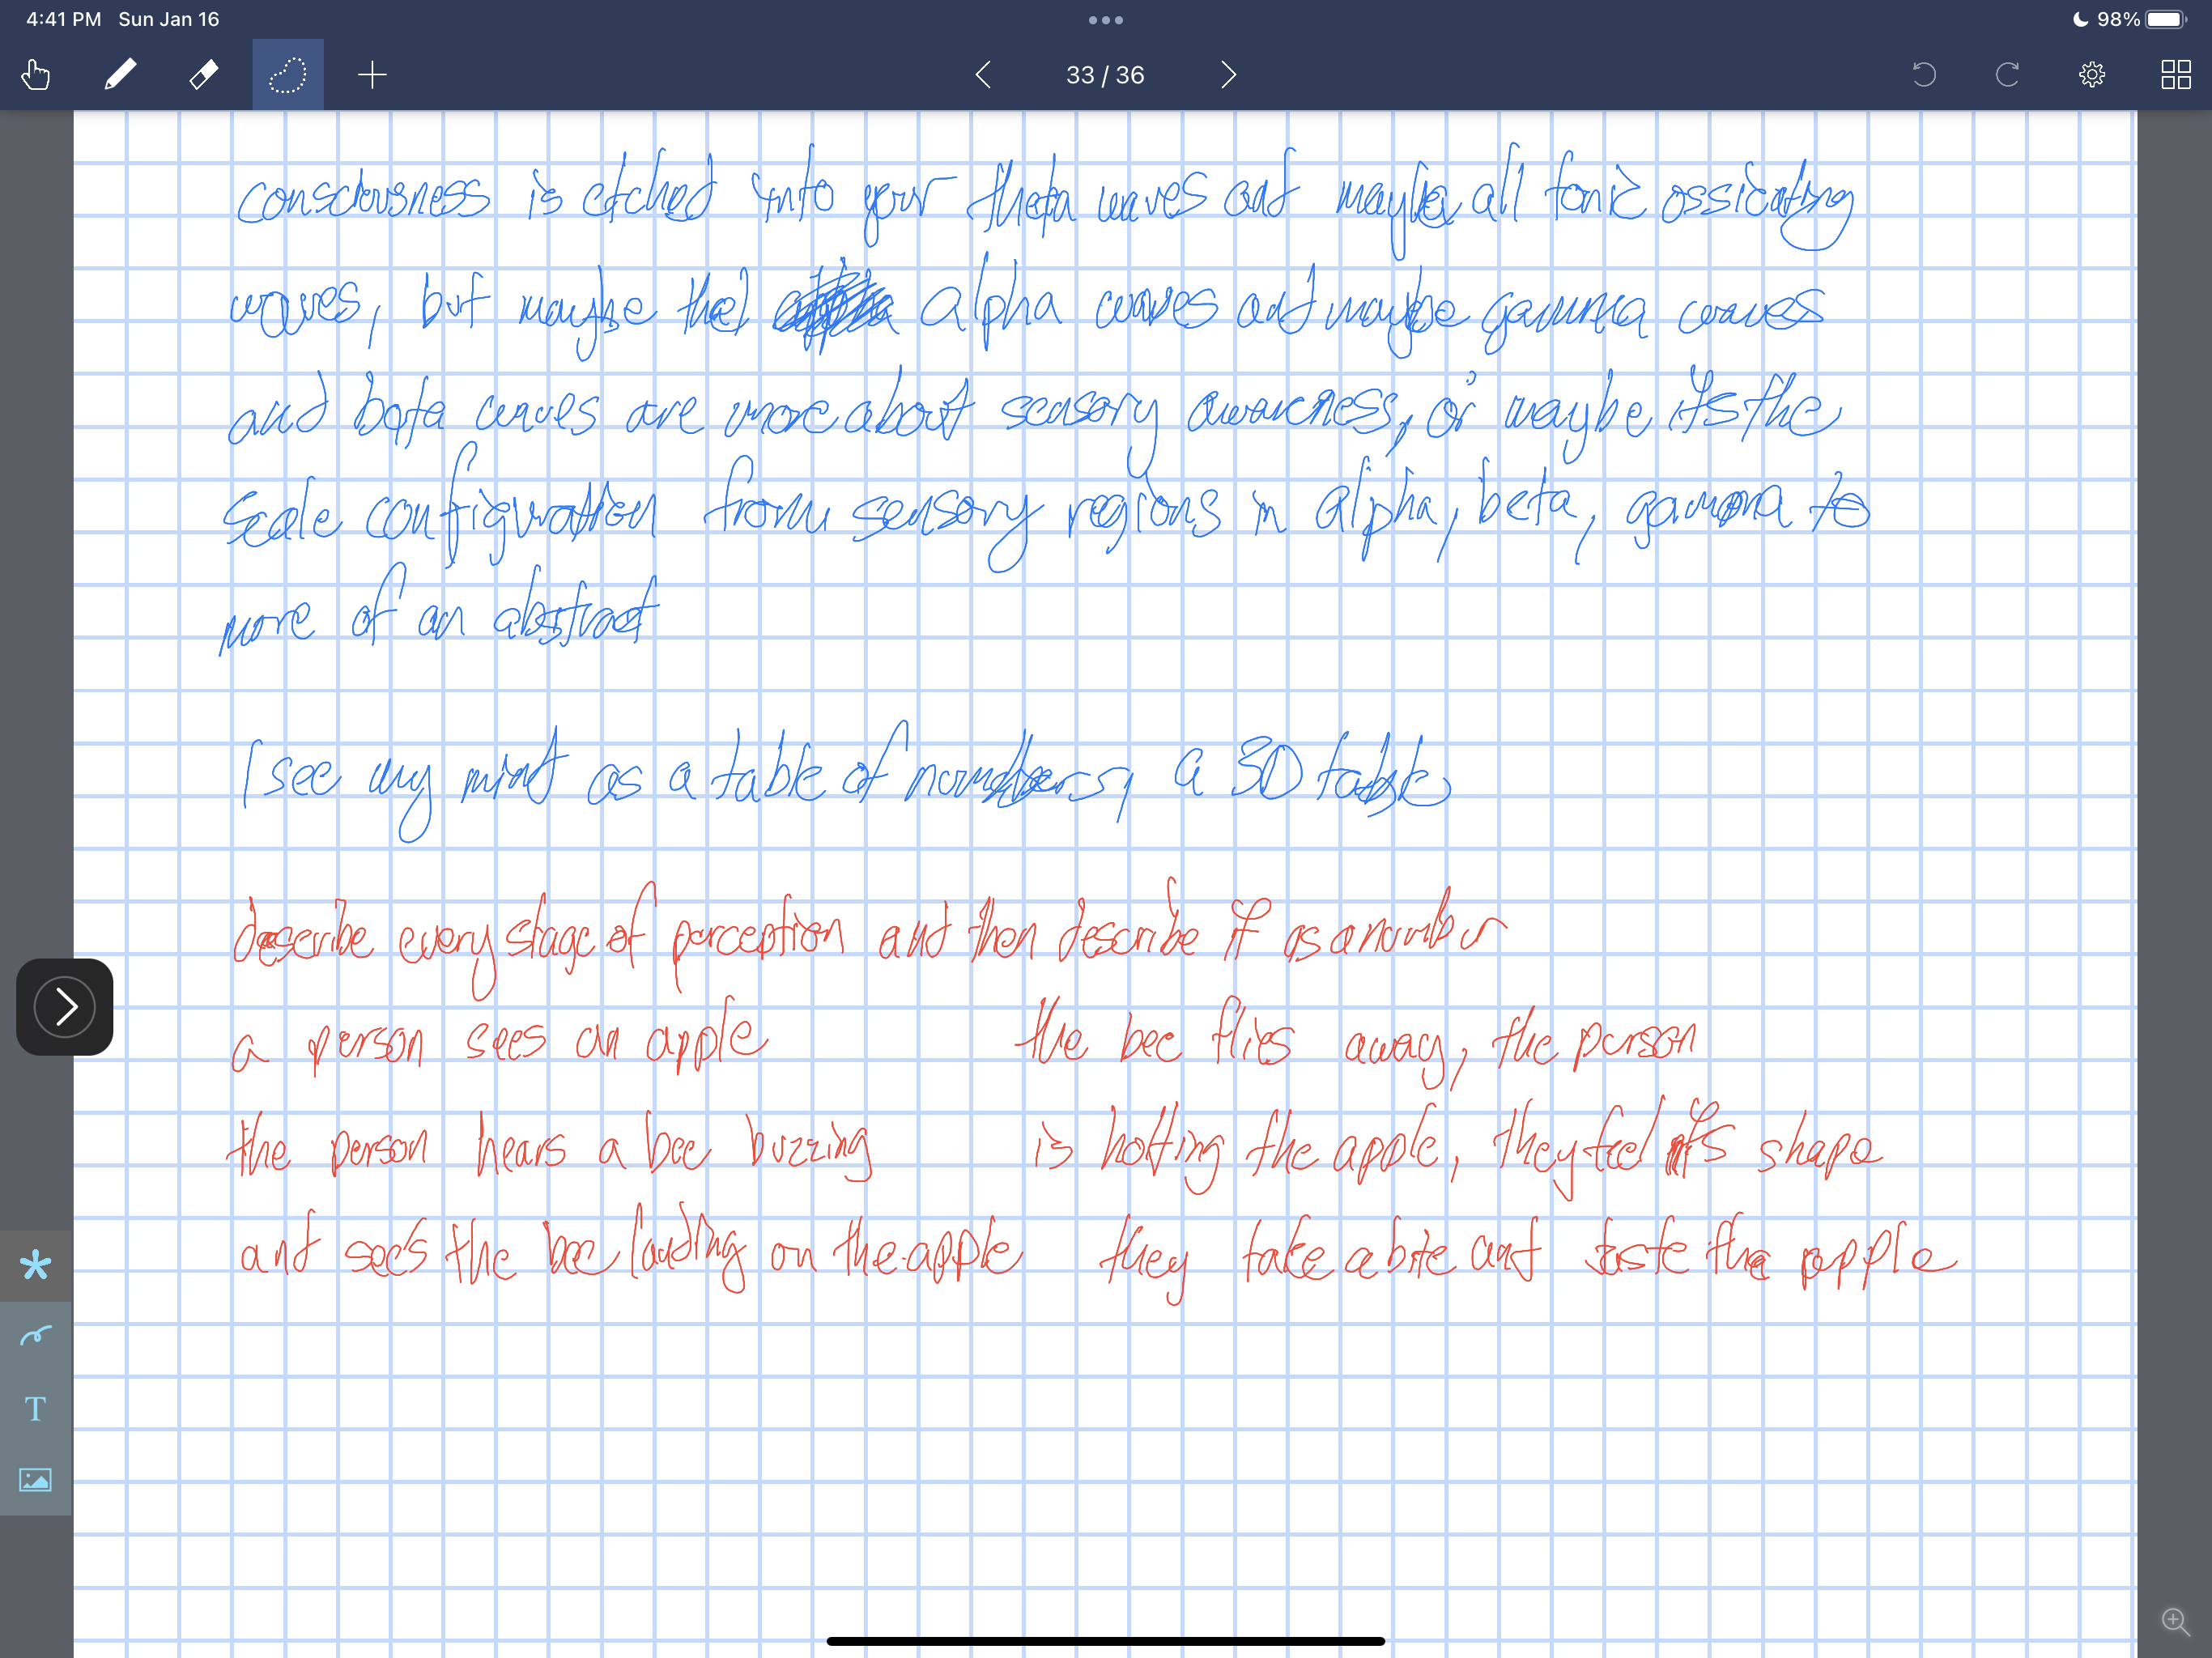 4:41 PM Sun Jan 16
98%
33 / 36
consciousness is etched into your theta waves and maybe all tonic ossicating
waves, but maybe the alpha waves and maybe gamma waves
and beta waves are more about sensory awareness, or maybe its the
scale configuration from sensory regions in alpha, beta, gamma to
more of an abstract
I see my mind as a table of numbers, a 3D table
describe every stage of perception and then describe it as a number
a person sees an apple
the person hears a bee buzzing
and sees the bee landing on the apple
the bee flies away, the person
is holding the apple, they feel its shape
they take a bite and taste the apple
T